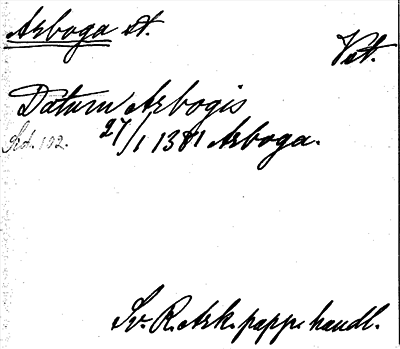 Arboga st.
Vstm.
Datum Arbogis
27/1 1381 Arboga.
Sv. R. Ark. papp. handl.